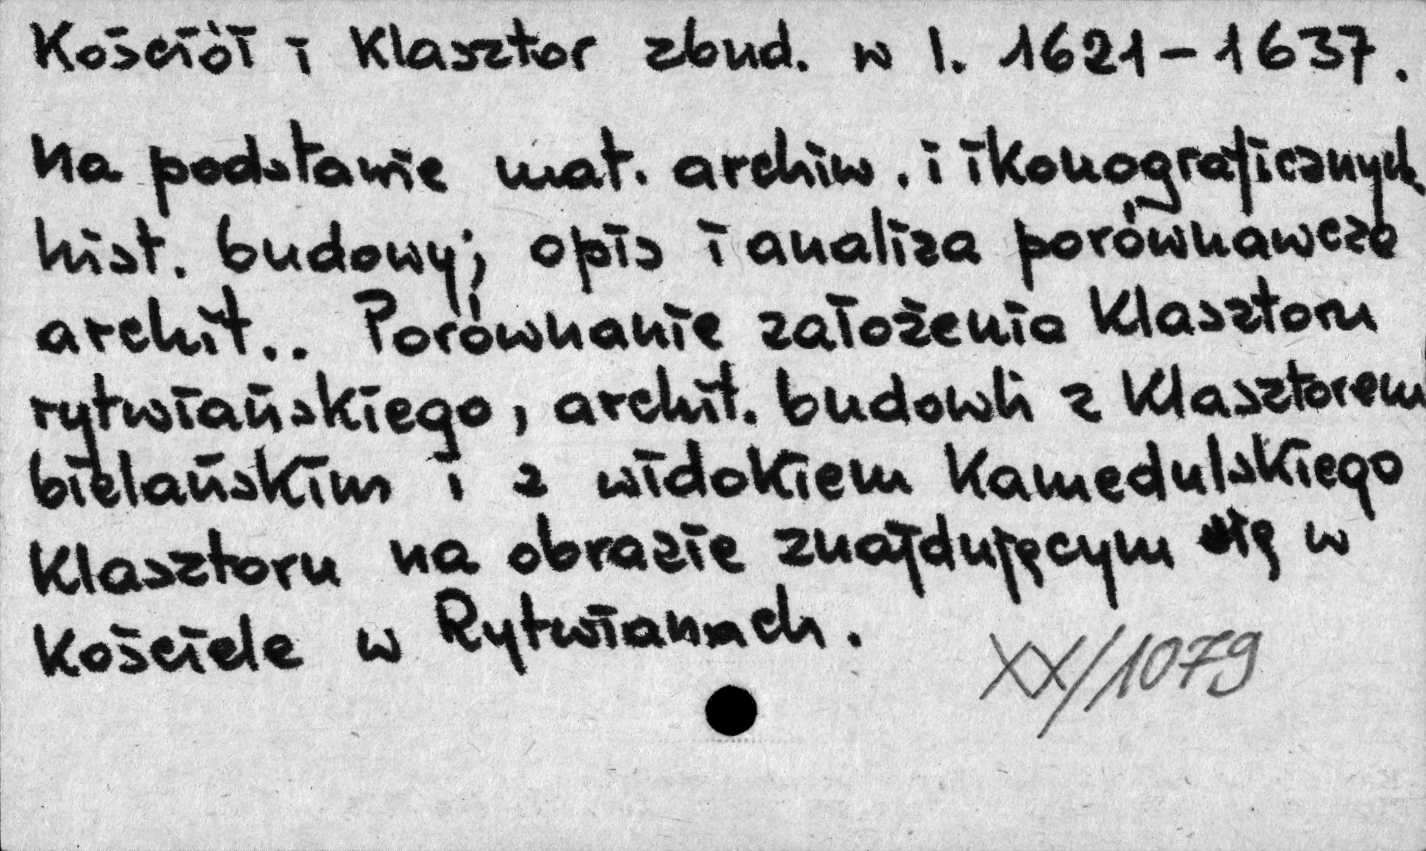 Kościół i Klasztor zbud. w l. 1621-1637.
Na podstawie mat. archiw. i ikonograficznych
hist. budowy; opis i analiza porównawcza
archit.. Porównanie założenia Klasztoru
rytwiańskiego, archit. budowli z Klasztorem
bielańskim i z widokiem Kamedulskiego
Klasztoru na obrazie znajdującym się w
Kościele w Rytwianach.
XX/1079